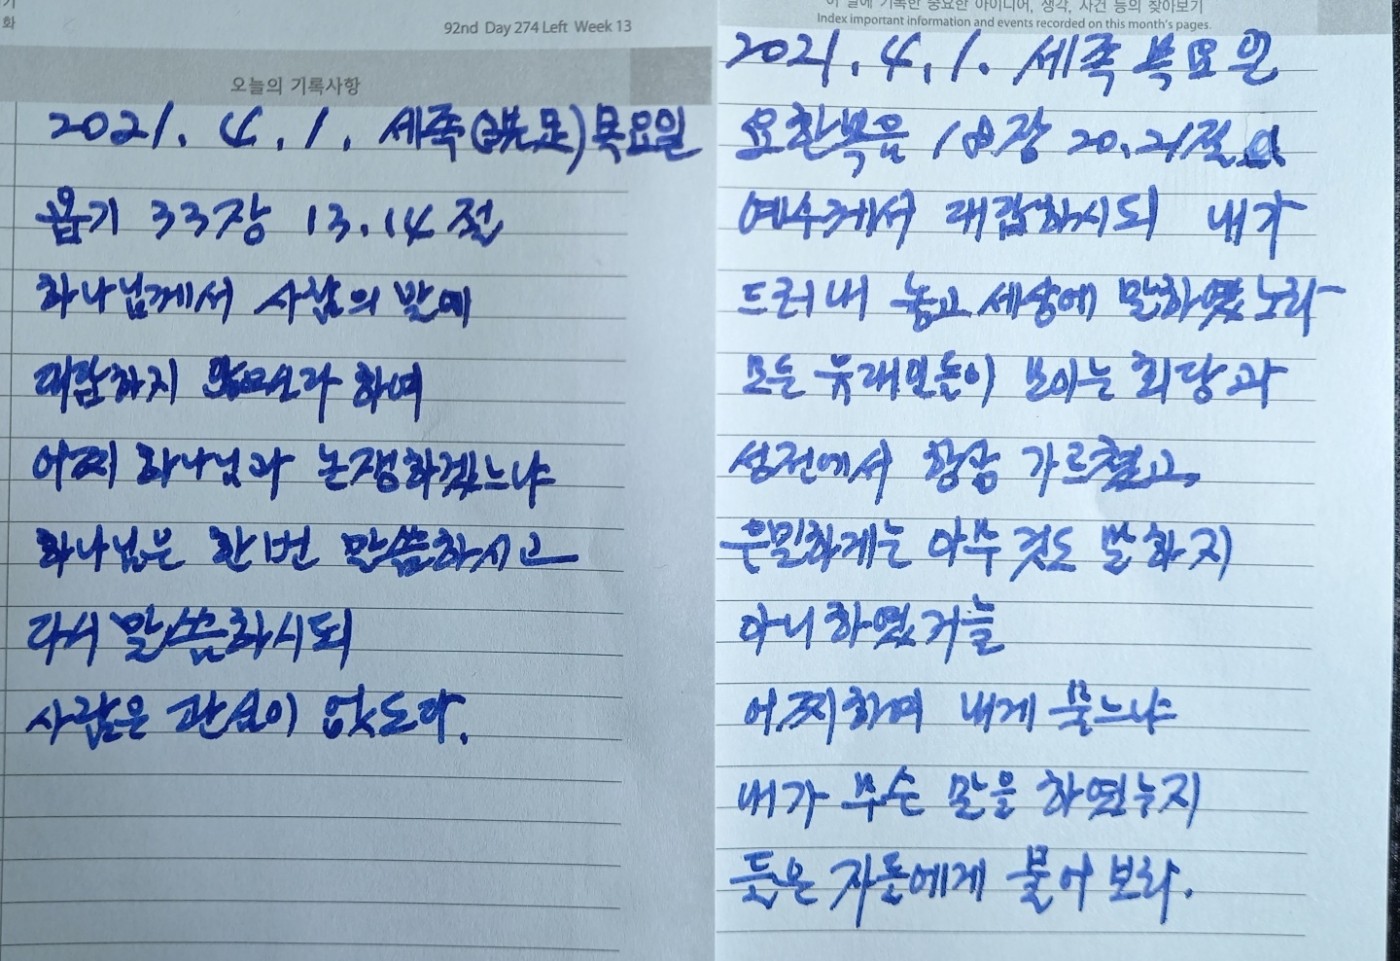 화
92nd Day 274 Left Week 13
오늘의 기록사항
2021. 4. 1. 세족(洗足)목요일
욥기 33장 13.14절
하나님께서 사람의 말에
대답하지 않으신다 하여
어찌 하나님과 논쟁하겠느냐
하나님은 한번 말씀하시고
다시 말씀하시되
사람은 관심이 없도다.
이 달에 기록한 중요한 아이디어, 생각, 사건 등의 찾아보기
Index important information and events recorded on this month's pages.
2021. 4. 1. 세족 목요일
요한복음 18장 20.21절
예수께서 대답하시되 내가
드러내 놓고 세상에 말하였노라
모든 유대인들이 모이는 회당과
성전에서 항상 가르쳤고
은밀하게는 아무 것도 말하지
아니하였거늘
어찌하여 내게 묻느냐
내가 무슨 말을 하였는지
들은 자들에게 물어 보라.